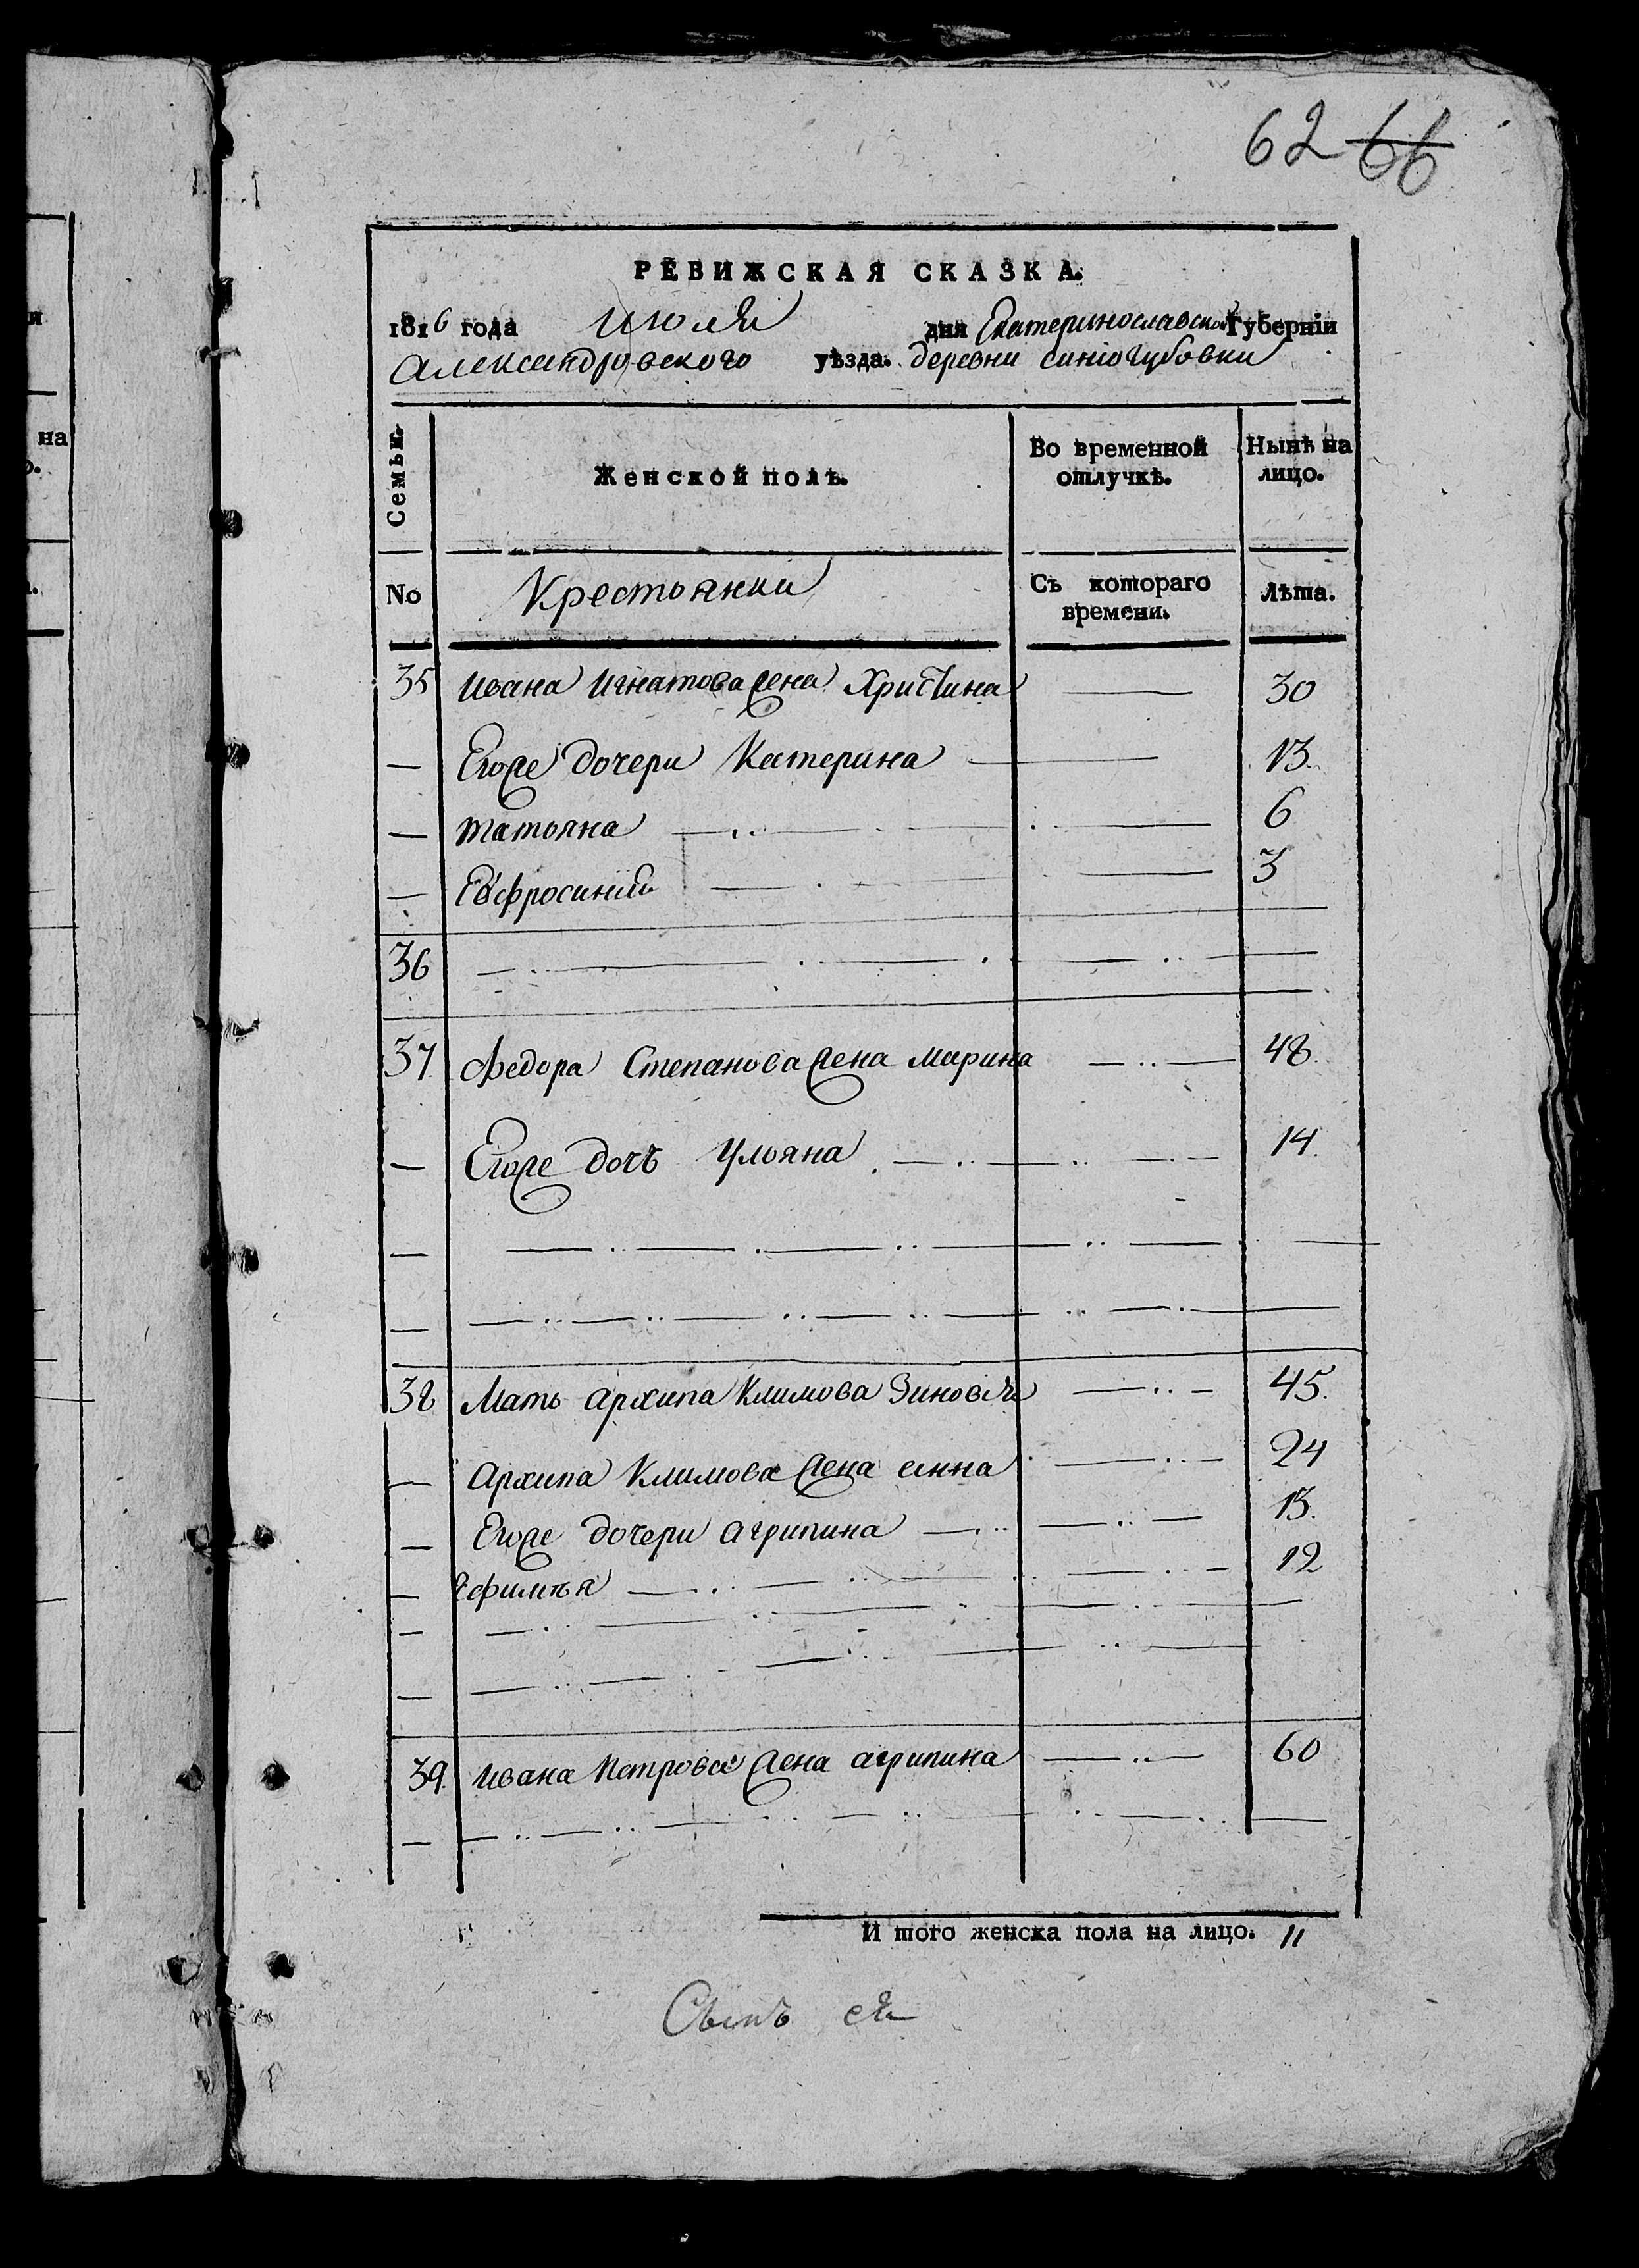 62 66
РЕВИЖСКАЯ СКАЗКА.
1816 года июля дня Екатеринославской Губерніи
Александровского уѣзда. деревни синіогубовки
Семьи. Женской полъ. Во временной отлучкѣ. Нынѣ на лицо.
No Крестьянки Съ котораго времени. Лѣта.
35 Ивана Игнатова жена Христина 30
— Егоже дочери Катерина 13.
— татьяна 6
— Евфросинія 3
36
37. Федора Степанова жена марина 48.
— Егоже дочь Ульяна 14.
38 Мать архипа Климова Зиновія 45.
— Архипа Климова жена анна 24
— Егоже дочери агрипина 13.
— Ефимъя 12
39. Ивана Петрова жена агрипина 60
И того женска пола на лицо. 11
на